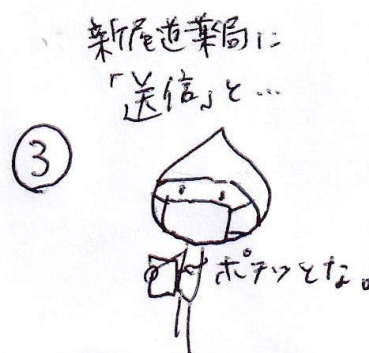 新尾道薬局に
「送信」と…
③
ポチッとな。